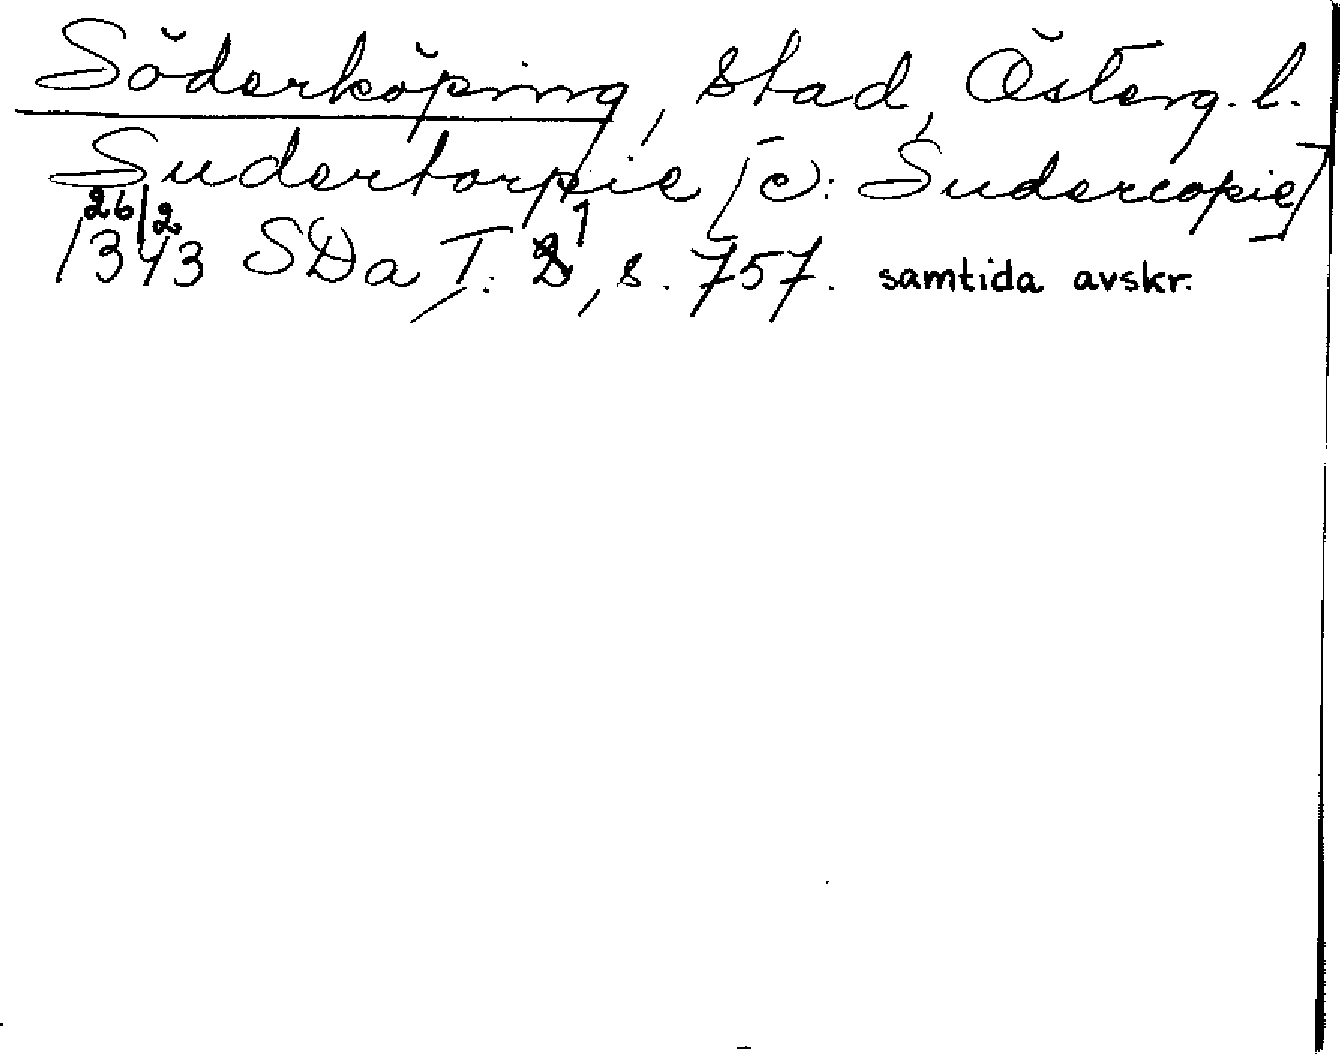 Söderköping, stad, Österg. l.
Sudertorpie [ɔ: Sudercopie]
26/2 1343 SDa T. 1, s. 757. samtida avskr.